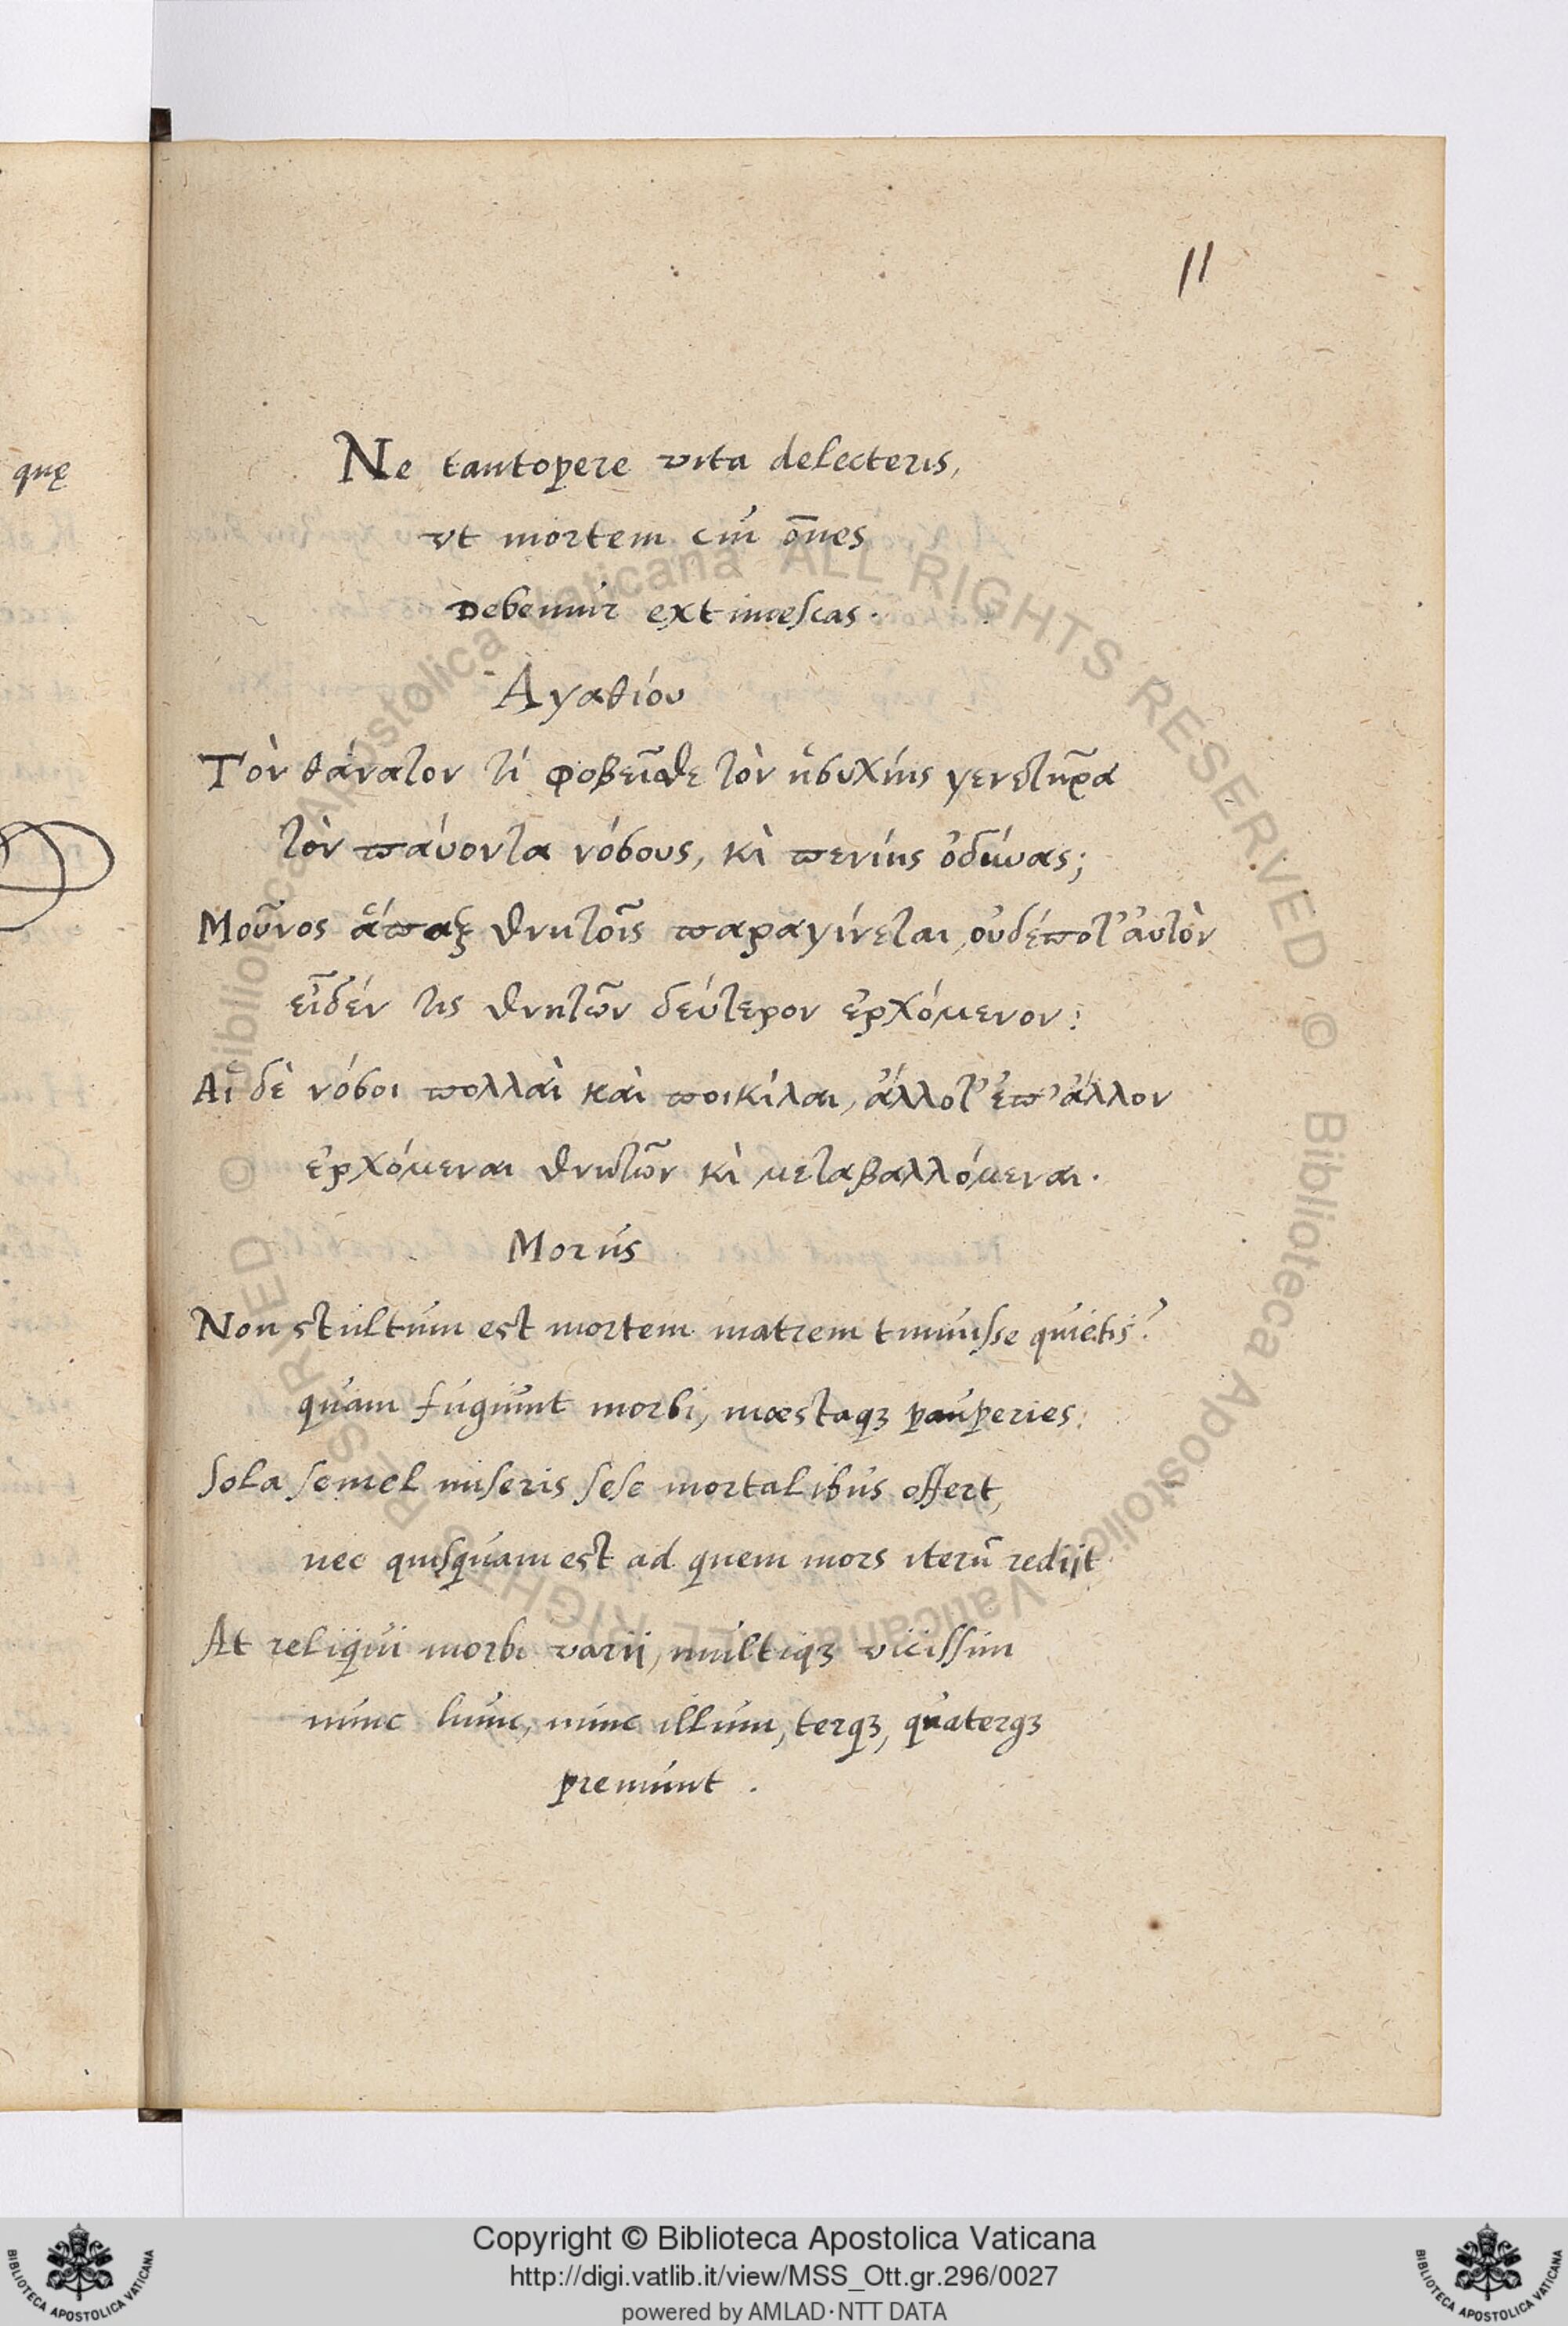 11
quę
Ne tantopere vita delecteris,
vt mortem cui ōnes
Debemur extimescas.
Ἀγαθίου
Τὸν θάνατον τί φοβεῖσθε τὸν ἡσυχίης γενετῆρα
τὸν παύοντα νόσους, κὶ πενίης ὀδύνας;
Μοῦνος ἅπαξ θνητοῖς παραγίνεται, οὐδέποτ' αὐτὸν
εἶδέν τις θνητῶν δεύτερον ἐρχόμενον:
Αἱ δὲ νόσοι πολλαὶ καὶ ποικίλαι, ἄλλοτ' ἐπ' ἄλλον
ἐρχόμεναι θνητῶν κὶ μεταβαλλόμεναι.
Morus
Non stultum est mortem matrem timuisse quietis?
quam fugiunt morbi, mœstaqȝ pauperies:
Sola semel miseris sese mortalibus offert,
nec quisquam est ad quem mors iterū redijt
At reliqui morbi varii, multiqȝ vicissim
nunc hunc, nunc illum, terqȝ, quaterqȝ
premunt .
Copyright © Biblioteca Apostolica Vaticana
http://digi.vatlib.it/view/MSS_Ott.gr.296/0027
powered by AMLAD·NTT DATA
BIBLIOTECA APOSTOLICA VATICANA
BIBLIOTECA APOSTOLICA VATICANA
© Biblioteca Apostolica Vaticana ALL RIGHTS RESERVED © Biblioteca Apostolica Vaticana ALL RIGHTS RESERVED